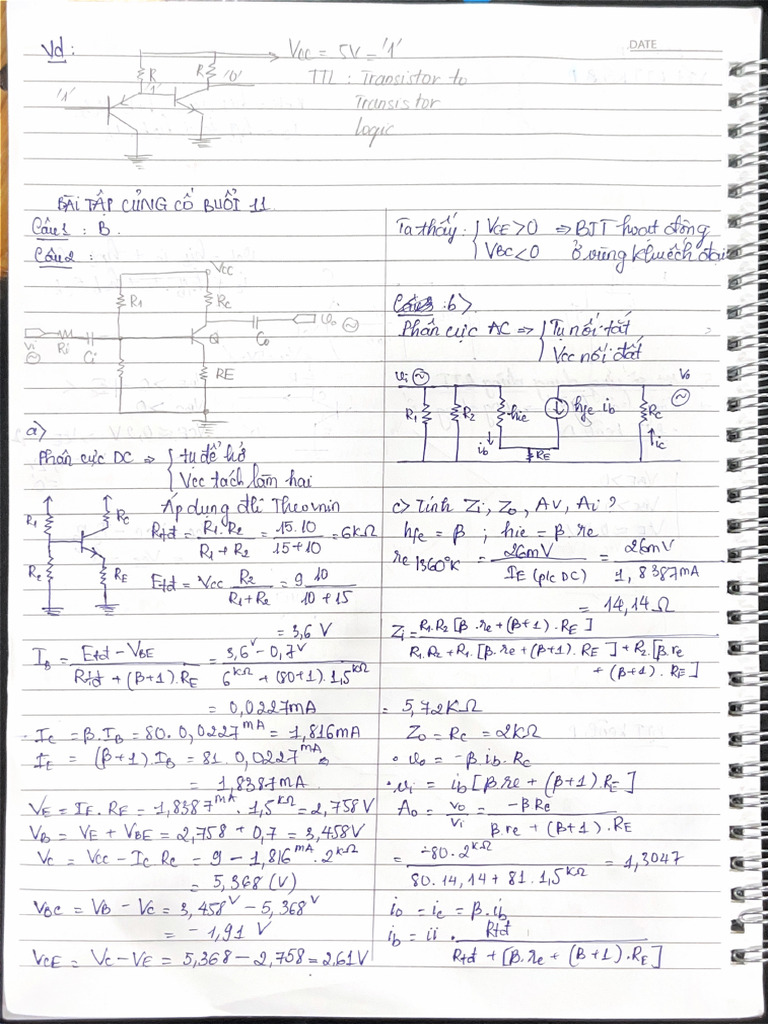 Vd :
VCC = 5V = '1'
DATE
R
R
'0'
'1'
'1'
TTL : Transistor to
Transistor
logic
BÀI TẬP CỦNG CỐ BUỔI 11.
Câu 1 : B.
Câu 2 :
VCC
R1
RC
vi
Ri
Ci
Q
Co
vo
RE
a)
Phân cực DC ⇒ { tụ để hở
VCC tách làm hai
R1
RC
R2
RE
Áp dụng đlí Thevenin
Rtđ = R1.R2 / (R1 + R2) = 15.10 / (15+10) = 6KΩ
Etđ = VCC R2 / (R1+R2) = 9 10 / (10+15)
= 3,6 V
IB = (Etđ - VBE) / (Rtđ + (β+1).RE) = (3,6V - 0,7V) / (6KΩ + (80+1).1,5KΩ)
= 0,0227mA
IC = β.IB = 80. 0,0227mA = 1,816mA
IE = (β+1).IB = 81. 0,0227mA
= 1,8387mA.
VE = IE.RE = 1,8387mA.1,5KΩ = 2,758V
VB = VE + VBE = 2,758 + 0,7 = 3,458V
VC = VCC - IC RC = 9 - 1,816mA.2KΩ
= 5,368 (V)
VBC = VB - VC = 3,458V - 5,368V
= -1,91 V
VCE = VC - VE = 5,368 - 2,758 = 2,61V
Ta thấy : { VCE > 0 ⇒ BJT hoạt động
VBC < 0 ở vùng khuếch đại
b)
Phân cực AC ⇒ { Tụ nối tắt
VCC nối đất
vi
vo
R1
R2
hie
hfe ib
RC
ib
RE
ic
c) Tính Zi, Zo, Av, Ai ?
hfe = β ; hie = β.re
re |360°K = 26mV / IE (p/c DC) = 26mV / 1,8387mA
= 14,14Ω
Zi = R1.R2 [β.re + (β+1).RE] / (R1.R2 + R1.[β.re + (β+1).RE] + R2.[β.re
+ (β+1).RE])
= 5,72KΩ
Zo = RC = 2KΩ
• vo = -β.ib.RC
• vi = ib [β.re + (β+1).RE]
Ao = vo / vi = -β RC / (β.re + (β+1).RE)
= -80.2KΩ / (80.14,14 + 81.1,5KΩ) = 1,3047
io = ic = β.ib
ib = ii . Rtđ / (Rtđ + [β.re + (β+1).RE])